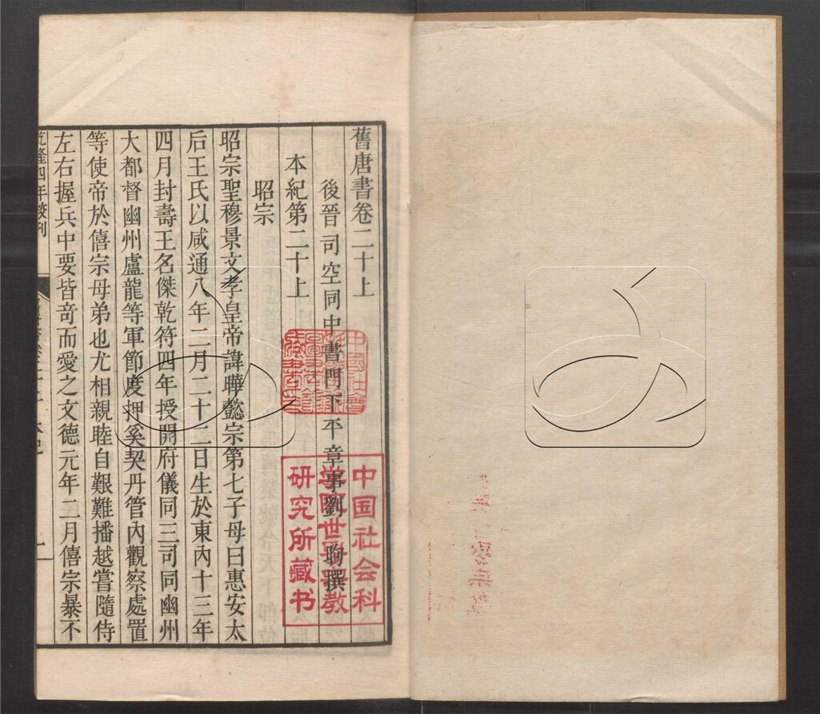 舊唐書卷二十上
後晉司空同中書門下平章事劉昫撰
本紀第二十上
昭宗
昭宗聖穆景文孝皇帝諱曄懿宗第七子母曰惠安太
后王氏以咸通八年二月二十二日生於東內十三年
四月封壽王名傑乾符四年授開府儀同三司同幽州
大都督幽州盧龍等軍節度押奚契丹管內觀察處置
等使帝於僖宗母弟也尤相親睦自艱難播越嘗隨侍
左右握兵中要皆奇而愛之文德元年二月僖宗暴不
乾隆四年校刊
中国社会科
学院世界宗教
研究所藏书